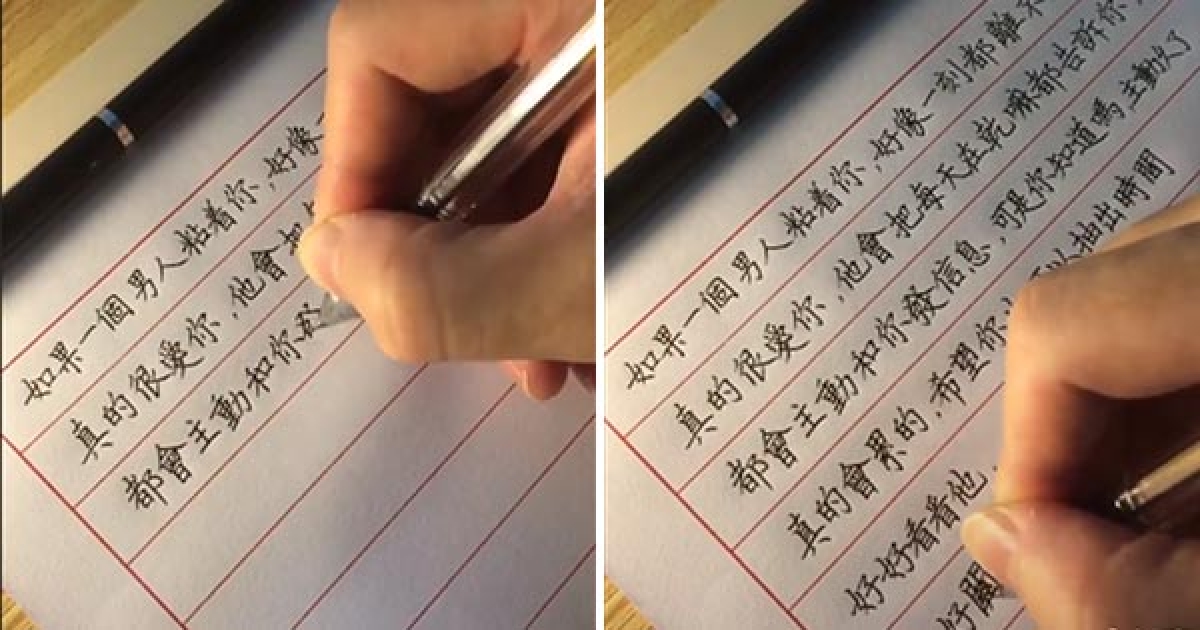 如果一個男人粘着你,好像
真的很愛你,他會把
都會主動和你
如果一個男人粘着你,好像一刻都離不
真的很愛你,他會把每天在乾嘛都告訴你,
都會主動和你發信息,可是你知道嗎主動久了
真的會累的.希望你 以抽出時間
好好看看他,
好